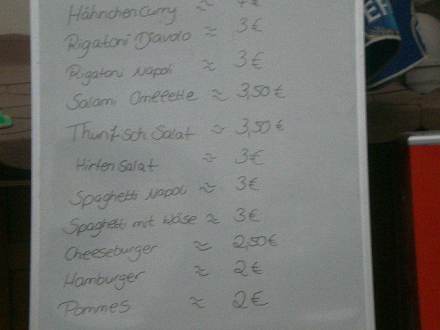 HähnchenCurry ≈ 4€
Rigatoni Diavolo ≈ 3€
Rigatoni Napoli ≈ 3€
Salami Omelette ≈ 3,50€
Thunfisch Salat ≈ 3,50€
Hirten Salat ≈ 3€
Spaghetti Napoli ≈ 3€
Spaghetti mit Käse ≈ 3€
Cheeseburger ≈ 2,50€
Hamburger ≈ 2€
Pommes ≈ 2€